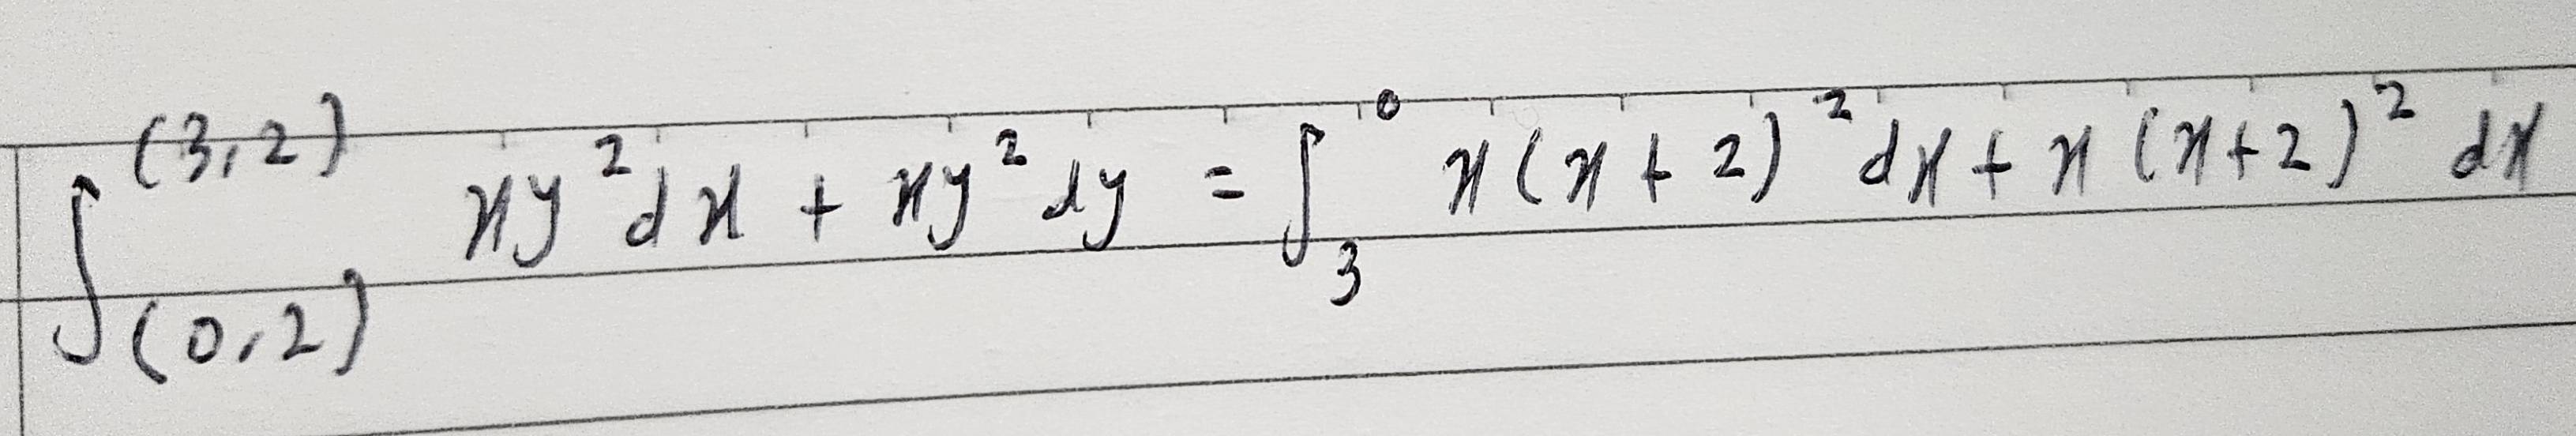 ∫_{(0,2)}^{(3,2)} xy²dx + xy²dy = ∫_3^0 x(x+2)²dx + x(x+2)² dx